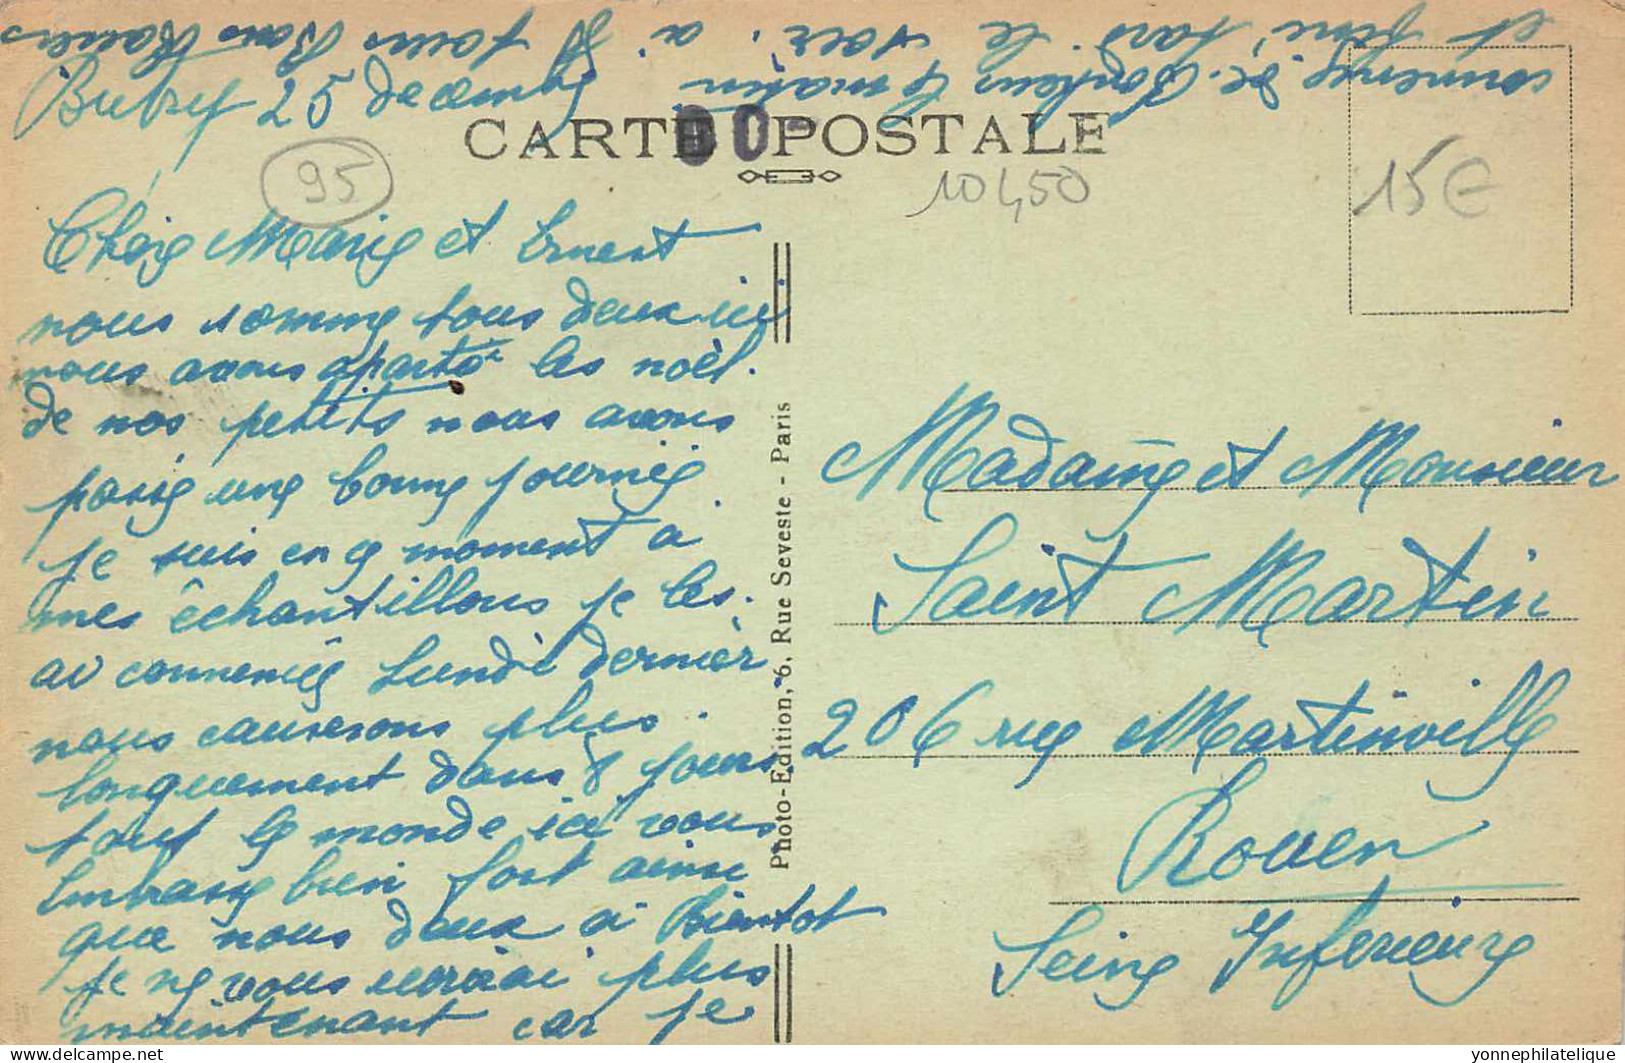 Butry 25 decembre
CARTE POSTALE
95
10450
15€
Chère Marie et Ernest
nous somme tous deux ici
nous avons aparté les noël.
de nos petits nous avons
passé une bonne journée
je suis en ce moment a
mes échantillons je les.
ai commencés Lundi dernier
nous causerons plus.
longuement dans 8 jours
tout le monde ici vous
embrasse bien fort ainsi
que nous deux a Bientot
je ne vous ecrirai plus
maintenant car je
commence de bonheur le matin
et fini tard le soir. a
tous Bons Baisers
Photo-Edition, 6, Rue Seveste - Paris
Madame et Monsieur
Saint Martin
206 rue Martinville
Rouen
Seine Inferieure
yonnephilatelique
delcampe.net